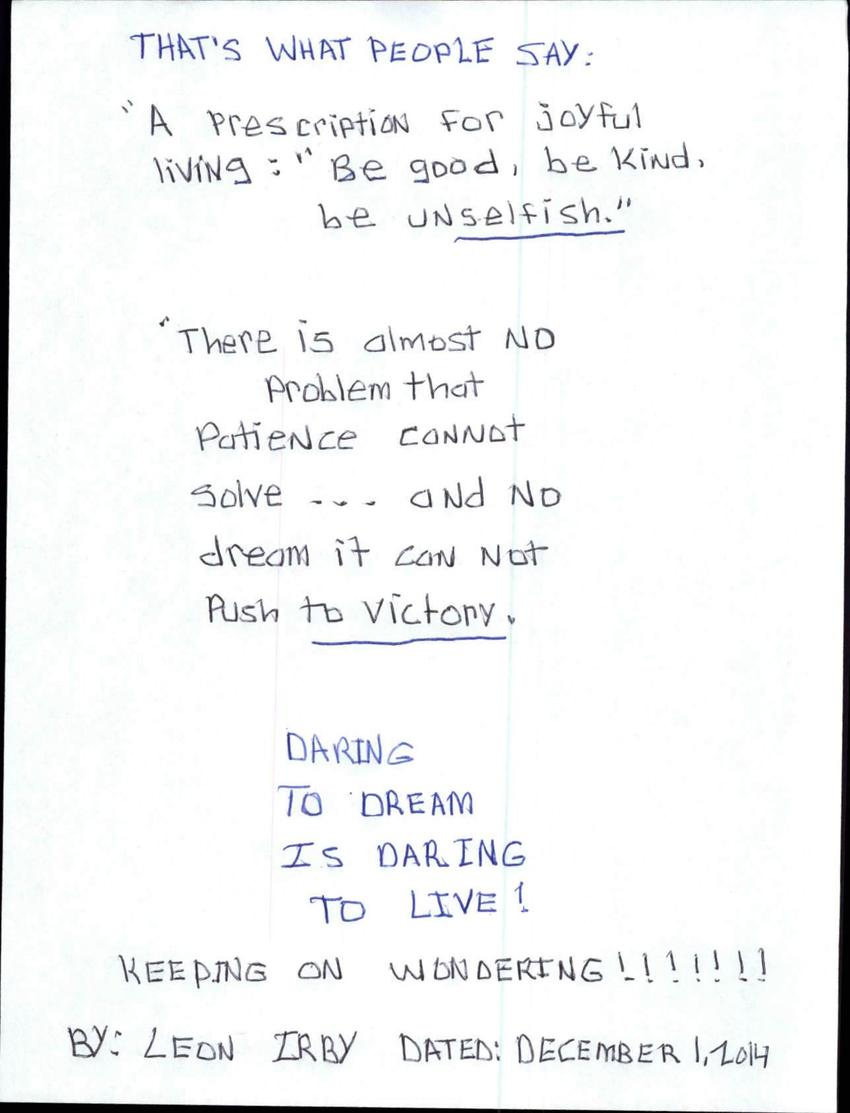 THAT'S WHAT PEOPLE SAY:
"A Prescription For joyful
living:" Be good, be kind,
be UNselfish."
"There is almost NO
Problem that
Patience cannot
solve --- and NO
dream it can Not
Push to Victory.
DARING
TO DREAM
IS DARING
TO LIVE!
KEEPING ON WONDERING!!!!!!!
BY: LEON IRBY DATED: DECEMBER 1, 2014